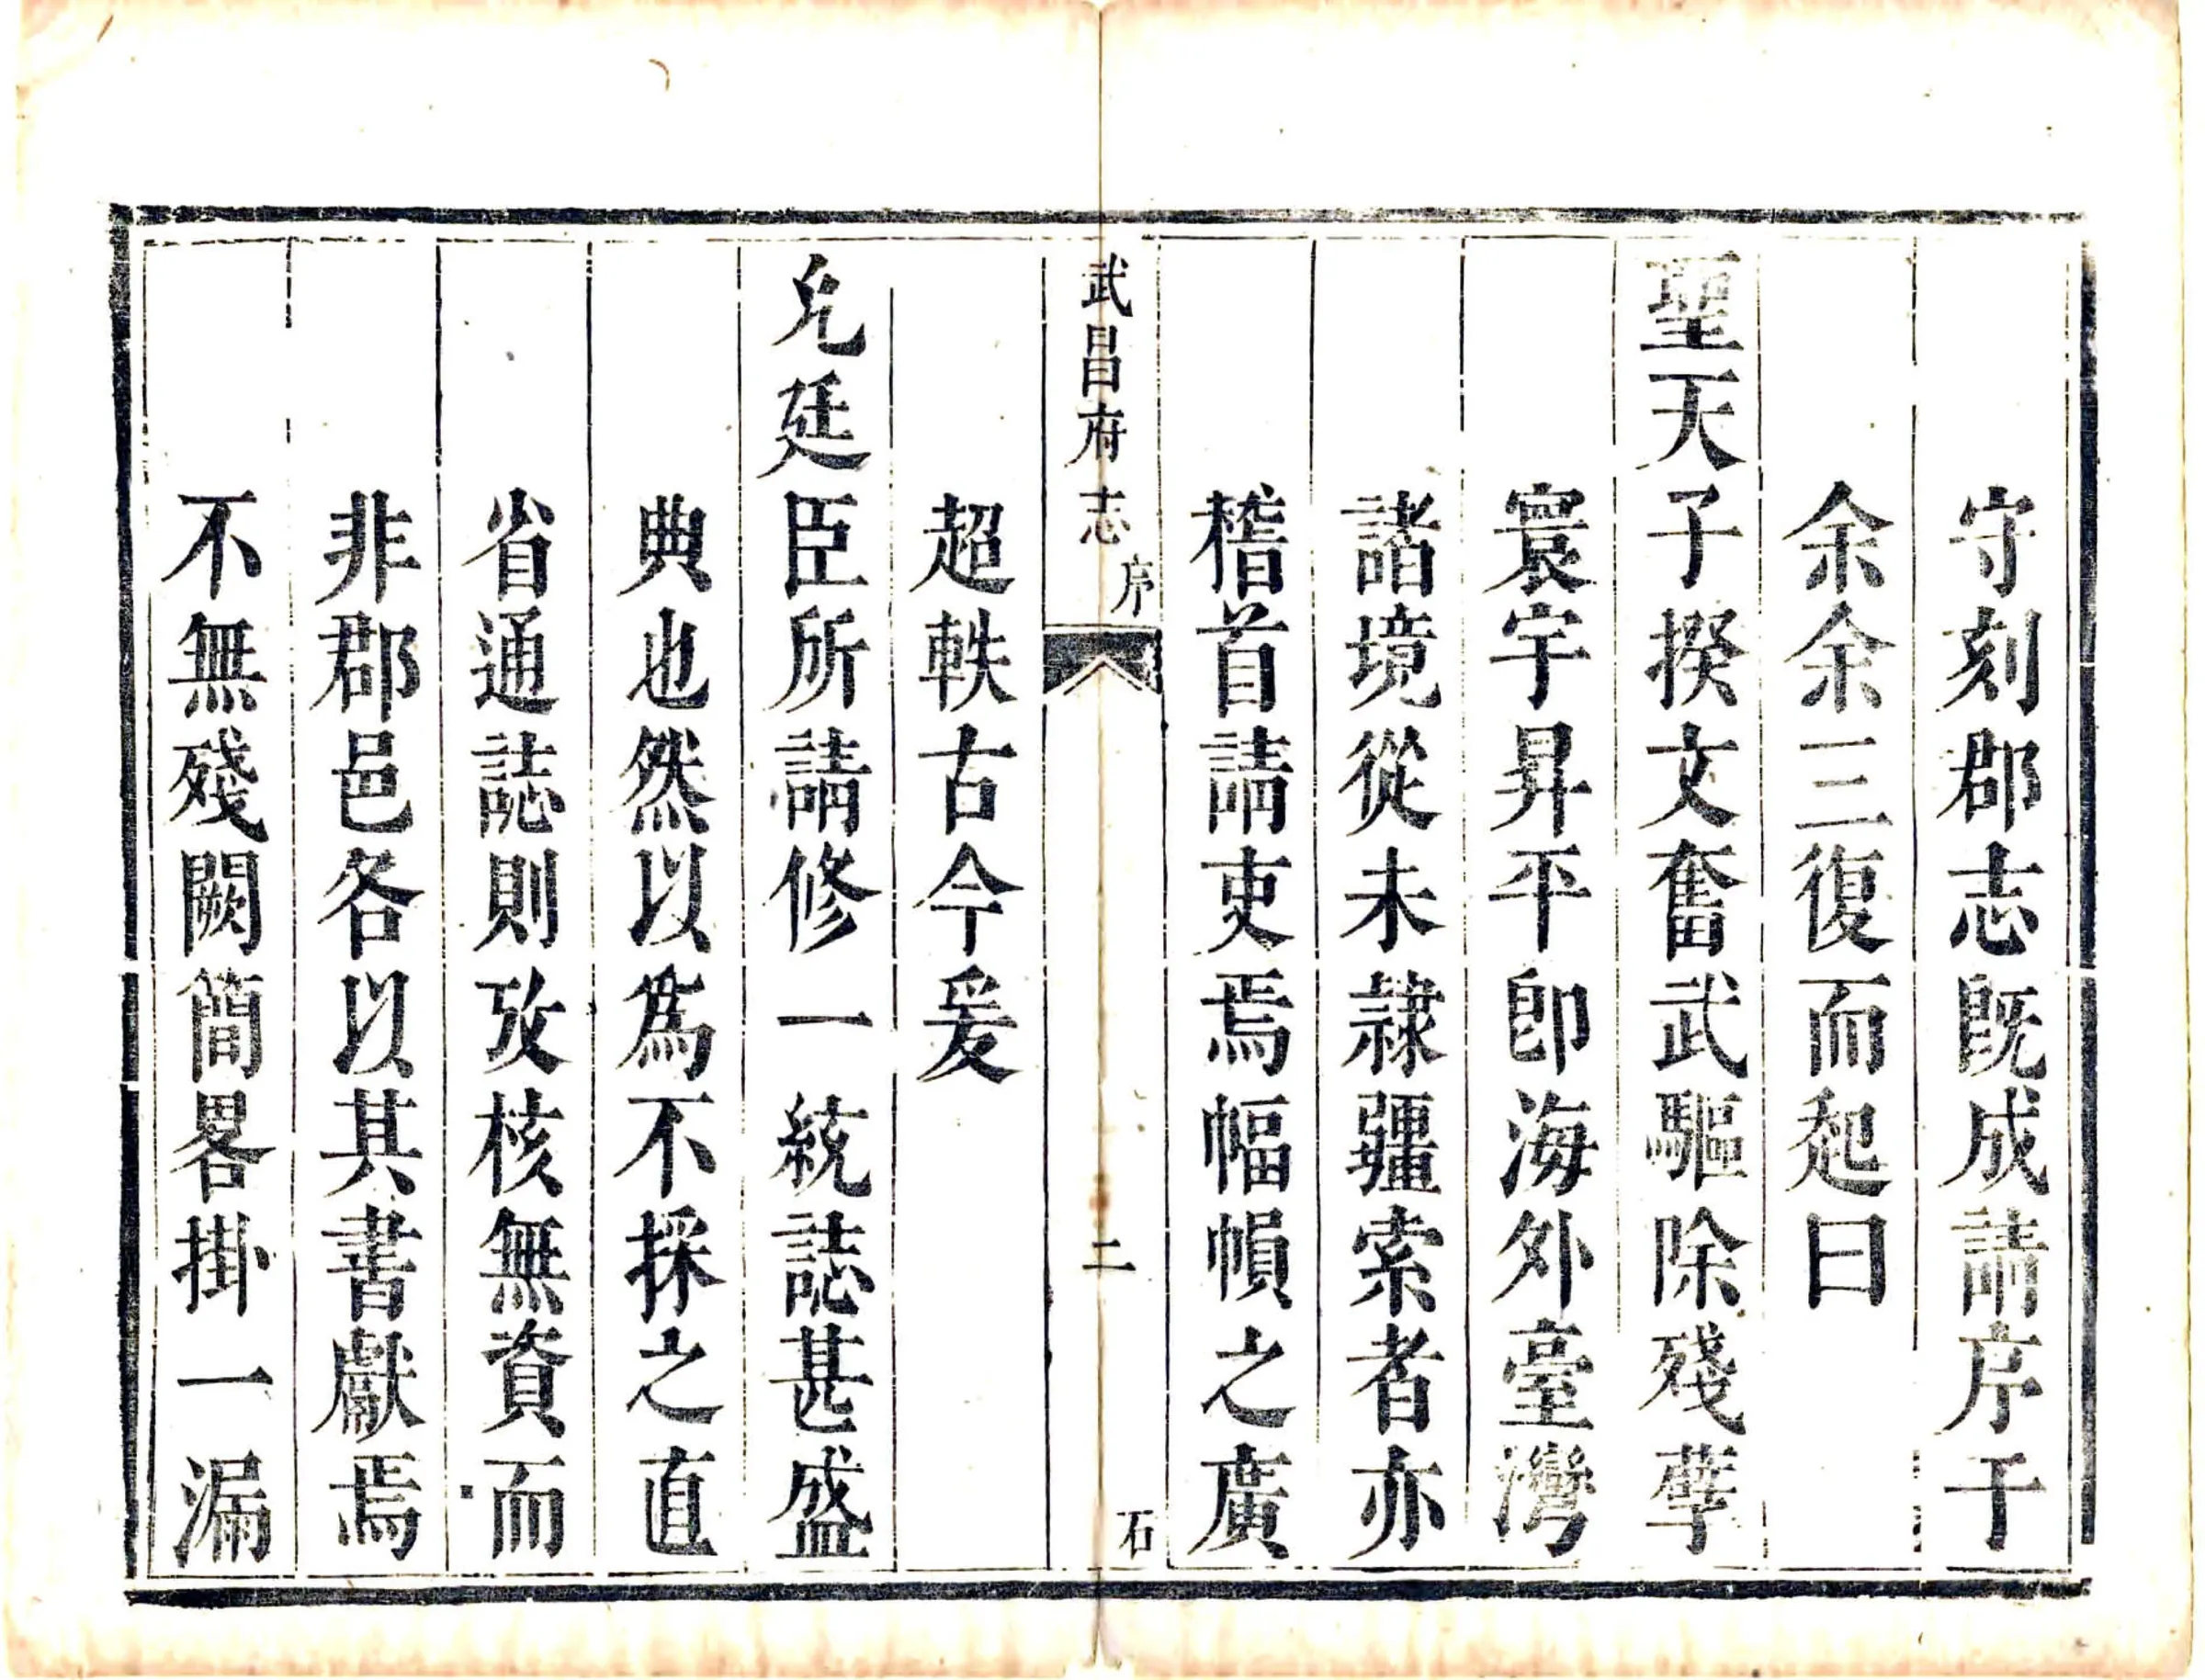 守刻郡志既成請序于
余余三復而起曰
聖天子揆文奮武驅除殘孽
寰宇昇平卽海外臺灣
諸境從未隸疆索者亦
稽首請吏焉幅幀之廣
武昌府志
序
二
石
超軼古今爰
允廷臣所請修一統誌甚盛
典也然以爲不採之直
省通誌則攷核無資而
非郡邑各以其書獻焉
不無殘闕簡畧掛一漏